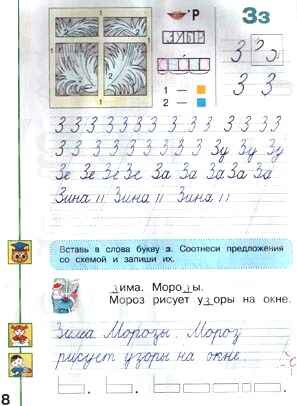 .р
Зз
1
2
2
1
1 —
2 —
З З
З З
З З З З З З З З З З З З З З З
З З З З З З З З З З Зу Зу Зу
Зе Зе Зе Зе За За За За За
Зина 11 Зина 11 Зина 11
Вставь в слова букву з. Соотнеси предложения
со схемой и запиши их.
зима. Морозы.
Мороз рисует узоры на окне.
Зима. Морозы. Мороз
рисует узоры на окне.
8